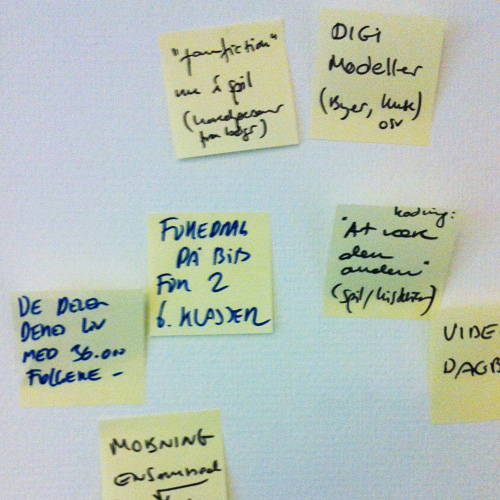 "fanfiction"
nu i spil
(hovedpersoner
fra bøger)
DIGI
Modeller
(Byer, huse)
osv
FOREDRAG
PÅ BIB
FOR 2
6. KLASSER
koding:
"At være
den
anden"
(spil/historier)
DE DELER
DERES LIV
MED 36.000
FØLGERE -
VIDE
DAGB
MOBNING
ensomhed